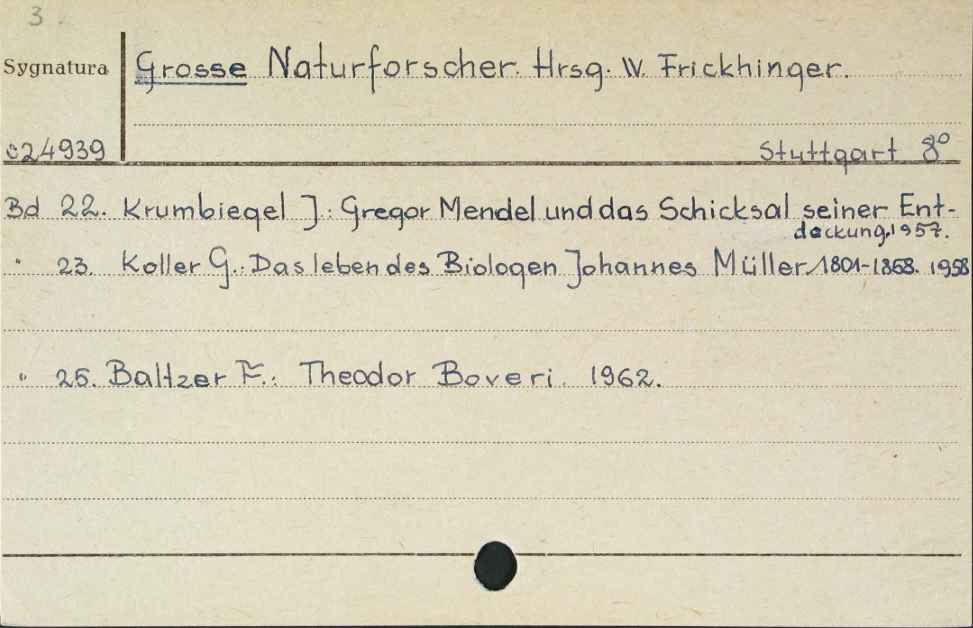 3
Sygnatura
Grosse Naturforscher. Hrsg. W. Frickhinger.
c24939
Stuttgart 8°
Bd 22. Krumbiegel J.: Gregor Mendel und das Schicksal seiner Ent-
deckung. 1957.
" 23. Koller G.: Das leben des Biologen Johannes Müller. 1801-1858. 1958
" 25. Baltzer F.: Theodor Boveri. 1962.